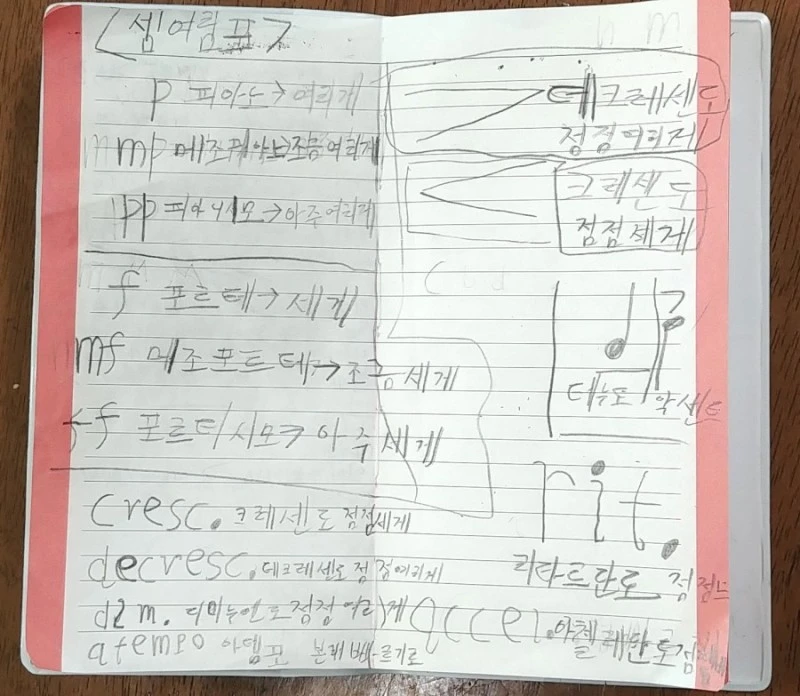 <셈여림표>
p 피아노→여리게
mp 메조피아노→조금여리게
pp 피아니시모→아주여리게
f 포르테→세게
mf 메조포르테→조금세게
ff 포르티시모→아주세게
cresc. 크레센도 점점세게
decresc. 데크레센도 점점여리게
dim. 디미누엔도 점점 여리게
a tempo 아템포 본래 빠르기로
데크레센도
점점여리게
크레센도
점점세게
테누토 악센트
rit.
리타르단도 점점느
accel. 아첼레란도 점